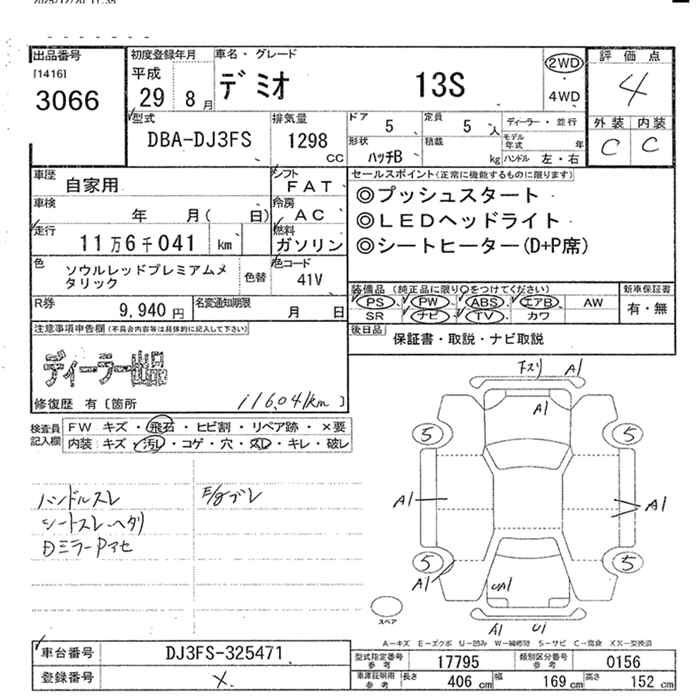 出品番号
[1416]
3066
初度登録年月
平成
29 8月
車名・グレード
デミオ 13S
2WD
4WD
評価点
4
外装 内装
C C
型式
DBA-DJ3FS
排気量
1298
CC
ドア
5
定員
5 人
形状
ハッチB
積載
kg
ディーラー・並行
モデル年式
年
ハンドル 左・右
車歴
自家用
シフト
FAT
車検
年 月( 日)
冷房
AC
走行
11万6千041 km
燃料
ガソリン
色
ソウルレッドプレミアムメタリック
色替
色コード
41V
R券
9,940 円
名変通知期限
月 日
セールスポイント(正常に機能するものに限ります)
◎プッシュスタート
◎LEDヘッドライト
◎シートヒーター(D+P席)
装備品 (純正品に限り〇をつけてください)
PS PW ABS エアB AW
SR ナビ TV カワ
新車保証書
有・無
後日品
保証書・取説・ナビ取説
注意事項申告欄(不具合内容等は具体的に記入して下さい)
ディーラー出品
修復歴 有〔箇所
116,041km〕
検査員記入欄
FW キズ・飛石・ヒビ割・リペア跡・×要
内装:キズ・汚れ・コゲ・穴・スレ・キレ・破レ
ハンドルスレ
シートスレ・ヘタリ
DミラーPアセ
E/gブレ
A1
A1
5 5
A1
A1
5 5
A1
UA1
A1 U1
スペア
A-キズ E-エクボ U-凹み W-補修跡 S-サビ C-腐食 XX-交換済
車台番号
DJ3FS-325471
登録番号
×
型式指定番号
参考
17795
類別区分番号
参考
0156
車庫証明用
参考
長さ
406 cm
幅
169 cm
高さ
152 cm